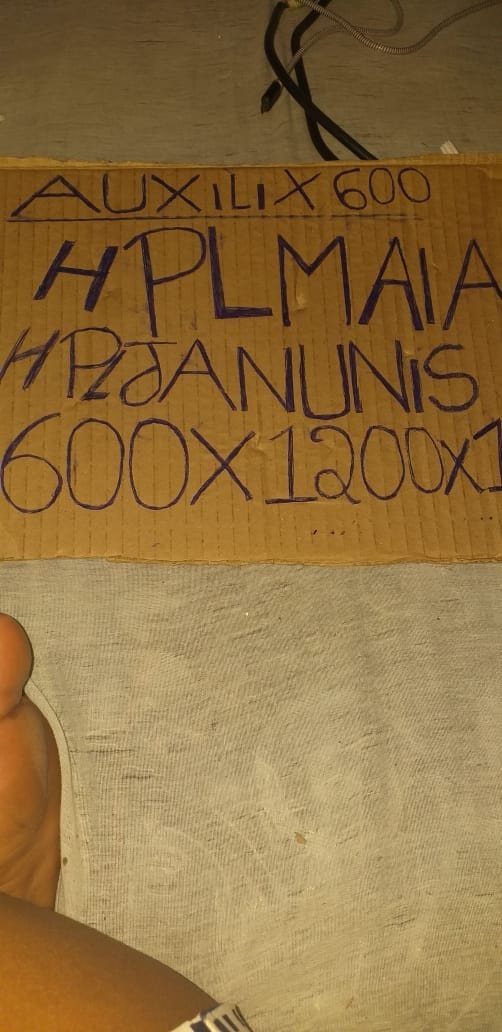 AUXiLiX 600
HPLMAIA
HPLJANUNiS
600X1200X1